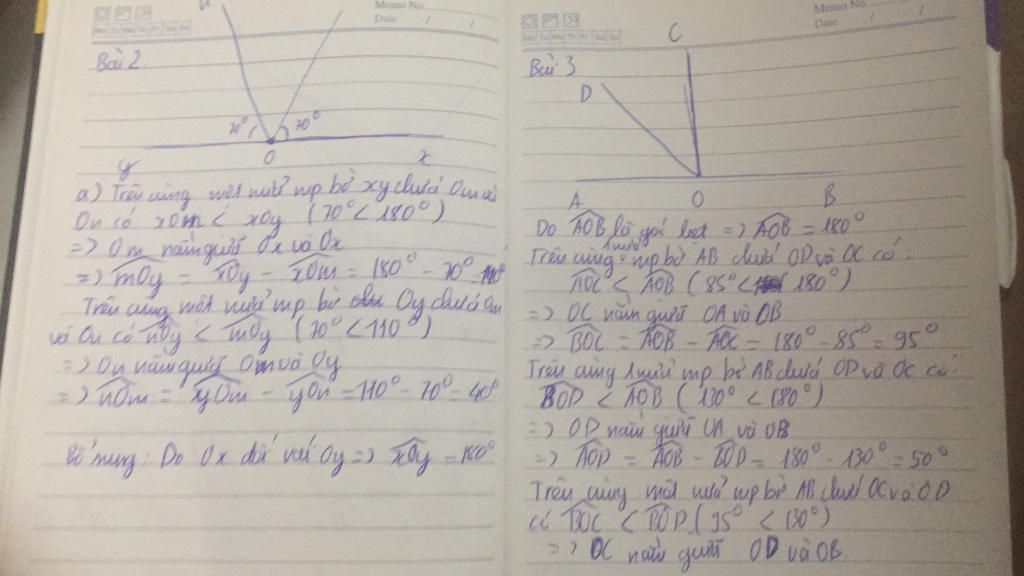 Memo No.
Date / /
Mo Tu We Th Fr Sa Su
Bài 2
70° 70°
y O x
a) Trên cùng một nửa mp bờ xy chứa Om và
On có xOm < xOy (70° < 180°)
=> Om nằm giữa Ox và Ox
=> mOy = xOy - xOm = 180° - 70° = 110°
Trên cùng một nửa mp bờ Oy chứa Om
và On có nOy < mOy (70° < 110°)
=> On nằm giữa Om và Oy
=> nOm = yOm - yOn = 110° - 70° = 40°
Bổ sung: Do Ox đối với Oy => xOy = 180°
Memo No.
Date / /
Mo Tu We Th Fr Sa Su
C
Bài 3
D
A O B
Do AOB là góc bẹt => AOB = 180°
Trên cùng 1 nửa mp bờ AB chứa OD và OC có:
AOC < AOB (85° < 180°)
=> OC nằm giữa OA và OB
=> BOC = AOB - AOC = 180° - 85° = 95°
Trên cùng 1 nửa mp bờ AB chứa OD và OC có:
BOD < AOB (130° < 180°)
=> OD nằm giữa OA và OB
=> AOD = AOB - BOD = 180° - 130° = 50°
Trên cùng một nửa mp bờ AB chứa OC và OD
có BOC < BOD (95° < 130°)
=> OC nằm giữa OD và OB